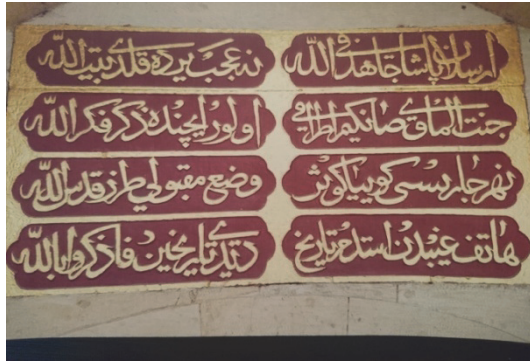 ارسلان پاشا جاهد فی الله
نه عجب یرده قلدی بیت الله
جنت المأوی صانکیم اطرافی
اولور ایچنده ذکر فکر الله
نهر جاریسی کوییا کوثر
وضع مقبولی طرز قدس الله
هاتف غیبدن استدم تاریخ
دیدی تاریخین فاذکروا بالله